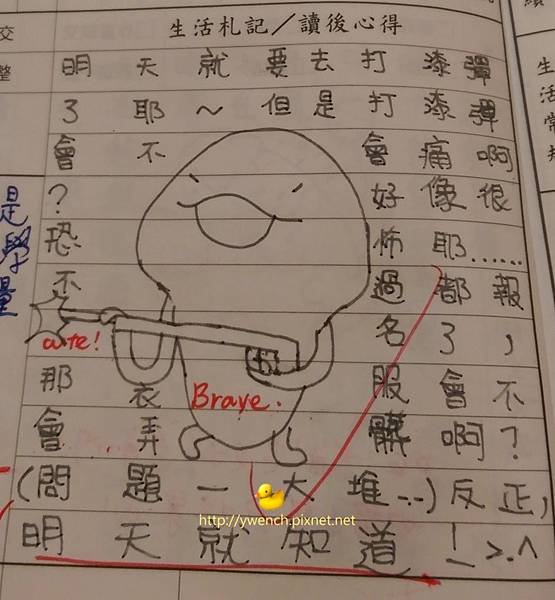 生活札記/讀後心得
明天就要去打漆彈
了耶~但是打漆彈
會不會痛啊
?好像很
恐怖耶......
不過都報
cute!
名了,
那衣服會不
Brave.
會弄髒啊?
(問題一大堆...)反正,
http://ywench.pixnet.net
明天就知道!>.^
交
整
生活常